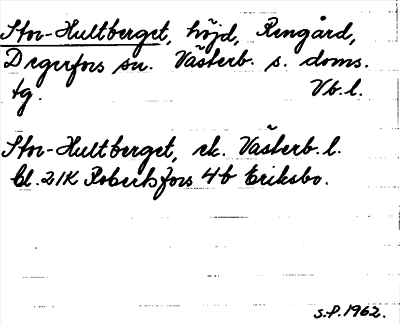 Stor-Hultberget, höjd, Rengård,
Degerfors sn. Västerb. s. doms.
tg. Vb.l.
Stor-Hultberget, rk. Västerb. l.
bl. 21K Robertsfors 4b Eriksbo.
S.P. 1962.